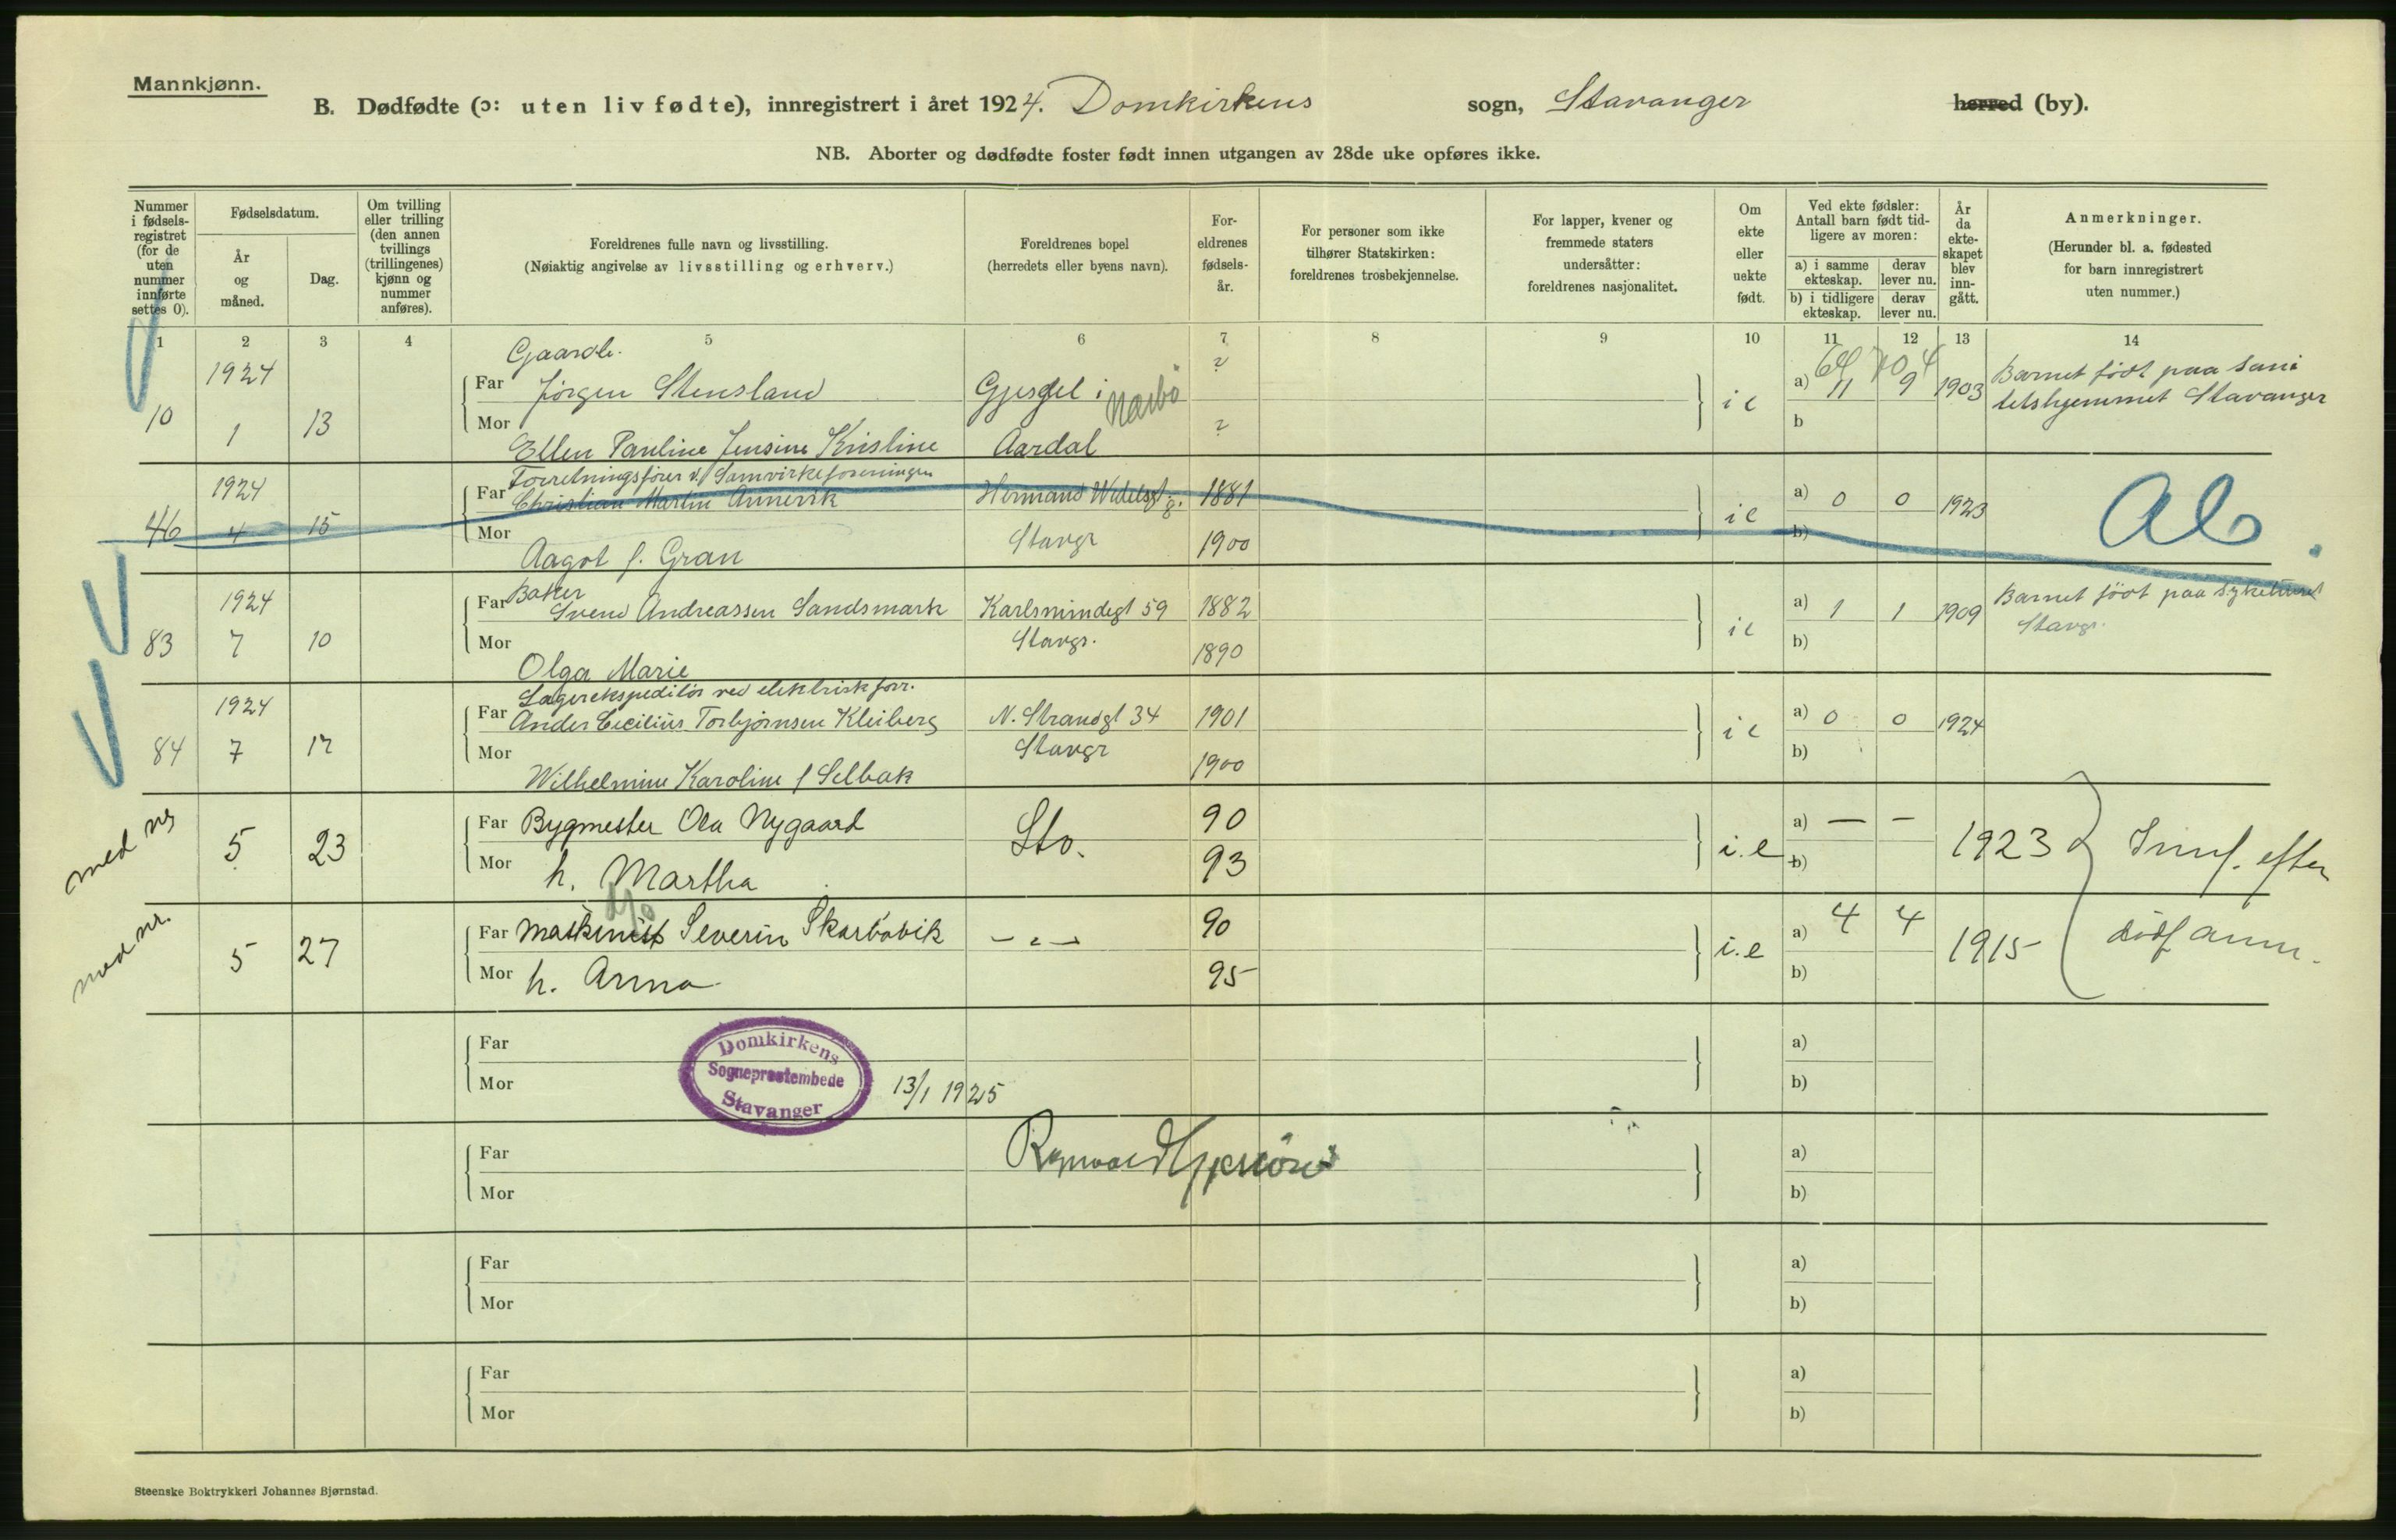 Mannkjønn.
B. Dødfødte (ɔ: uten liv fødte), innregistrert i året 1924. Domkirkens sogn, Stavanger herred (by).
NB. Aborter og dødfødte foster født innen utgangen av 28de uke opføres ikke.
Nummer i fødsels- registret (for de uten nummer innførte settes 0).
Fødselsdatum.
År og måned.
Dag.
Om tvilling eller trilling (den annen tvillings (trillingenes) kjønn og nummer anføres).
Foreldrenes fulle navn og livsstilling.
(Nøiaktig angivelse av livsstilling og erhverv.)
Foreldrenes bopel
(herredets eller byens navn).
For- eldrenes fødsels- år.
For personer som ikke tilhører Statskirken: foreldrenes trosbekjennelse.
For lapper, kvener og fremmede staters undersåtter: foreldrenes nasjonalitet.
Om ekte eller uekte født.
Ved ekte fødsler: Antall barn født tid- ligere av moren:
a) i samme ekteskap. derav lever nu.
b) i tidligere ekteskap. derav lever nu.
År da ekte- skapet blev inn- gått.
Anmerkninger.
(Herunder bl. a. fødested for barn innregistrert uten nummer.)
1 2 3 4 5 6 7 8 9 10 11 12 13 14
Gaardb.
1924 Far Jørgen Stensland Gjesdel i Nærbø ? a) 11 9 1903 Barnet födt paa Sani
tetshjemmet Stavanger
10 1 13 Mor ? i e b
Ellen Pauline Jensine Kristine Aardal
Forretningsfører v/ Samvirkeforeningen
1924 Far Christian Martin Annevik Hermand Wedelsgt 1881 a) 0 0 1923 Ab.
46 4 15 Mor Stavgr 1900 i e b)
Aagot f. Gran
Baker
1924 Far Svend Andreassen Sandsmark Karlsmindegt 59 1882 a) 1 1 1909 Barnet födt paa Sykehuset
Stavgr.
83 7 10 Mor Stavgr. 1890 i e b)
Olga Marie
Lagerekspeditör ved elektrisk forr.
1924 Far Ander Cecilius Torbjørnsen Kleiberg N. Strandgt 34 1901 a) 0 0 1924
84 7 17 Mor Stavgr 1900 i e b)
Wilhelmine Karoline f Selbak
med nr 5 23 Far Bygmester Ola Nygaard Sto. 90 i.e a) — — 1923 Innf. efter
Mor h. Martha 93 b)
med nr. 5 27 Far Maskinist Severin Skarbövik — " — 90 i.e a) 4 4 1915 dödf anm.
Mor h. Anna 95 b)
Far a)
Mor b)
Domkirkens
Sogneprestembede
Stavanger
13/1 1925
Far a)
Mor b)
Far a)
Mor b)
Far a)
Mor b)
Steenske Boktrykkeri Johannes Bjørnstad.